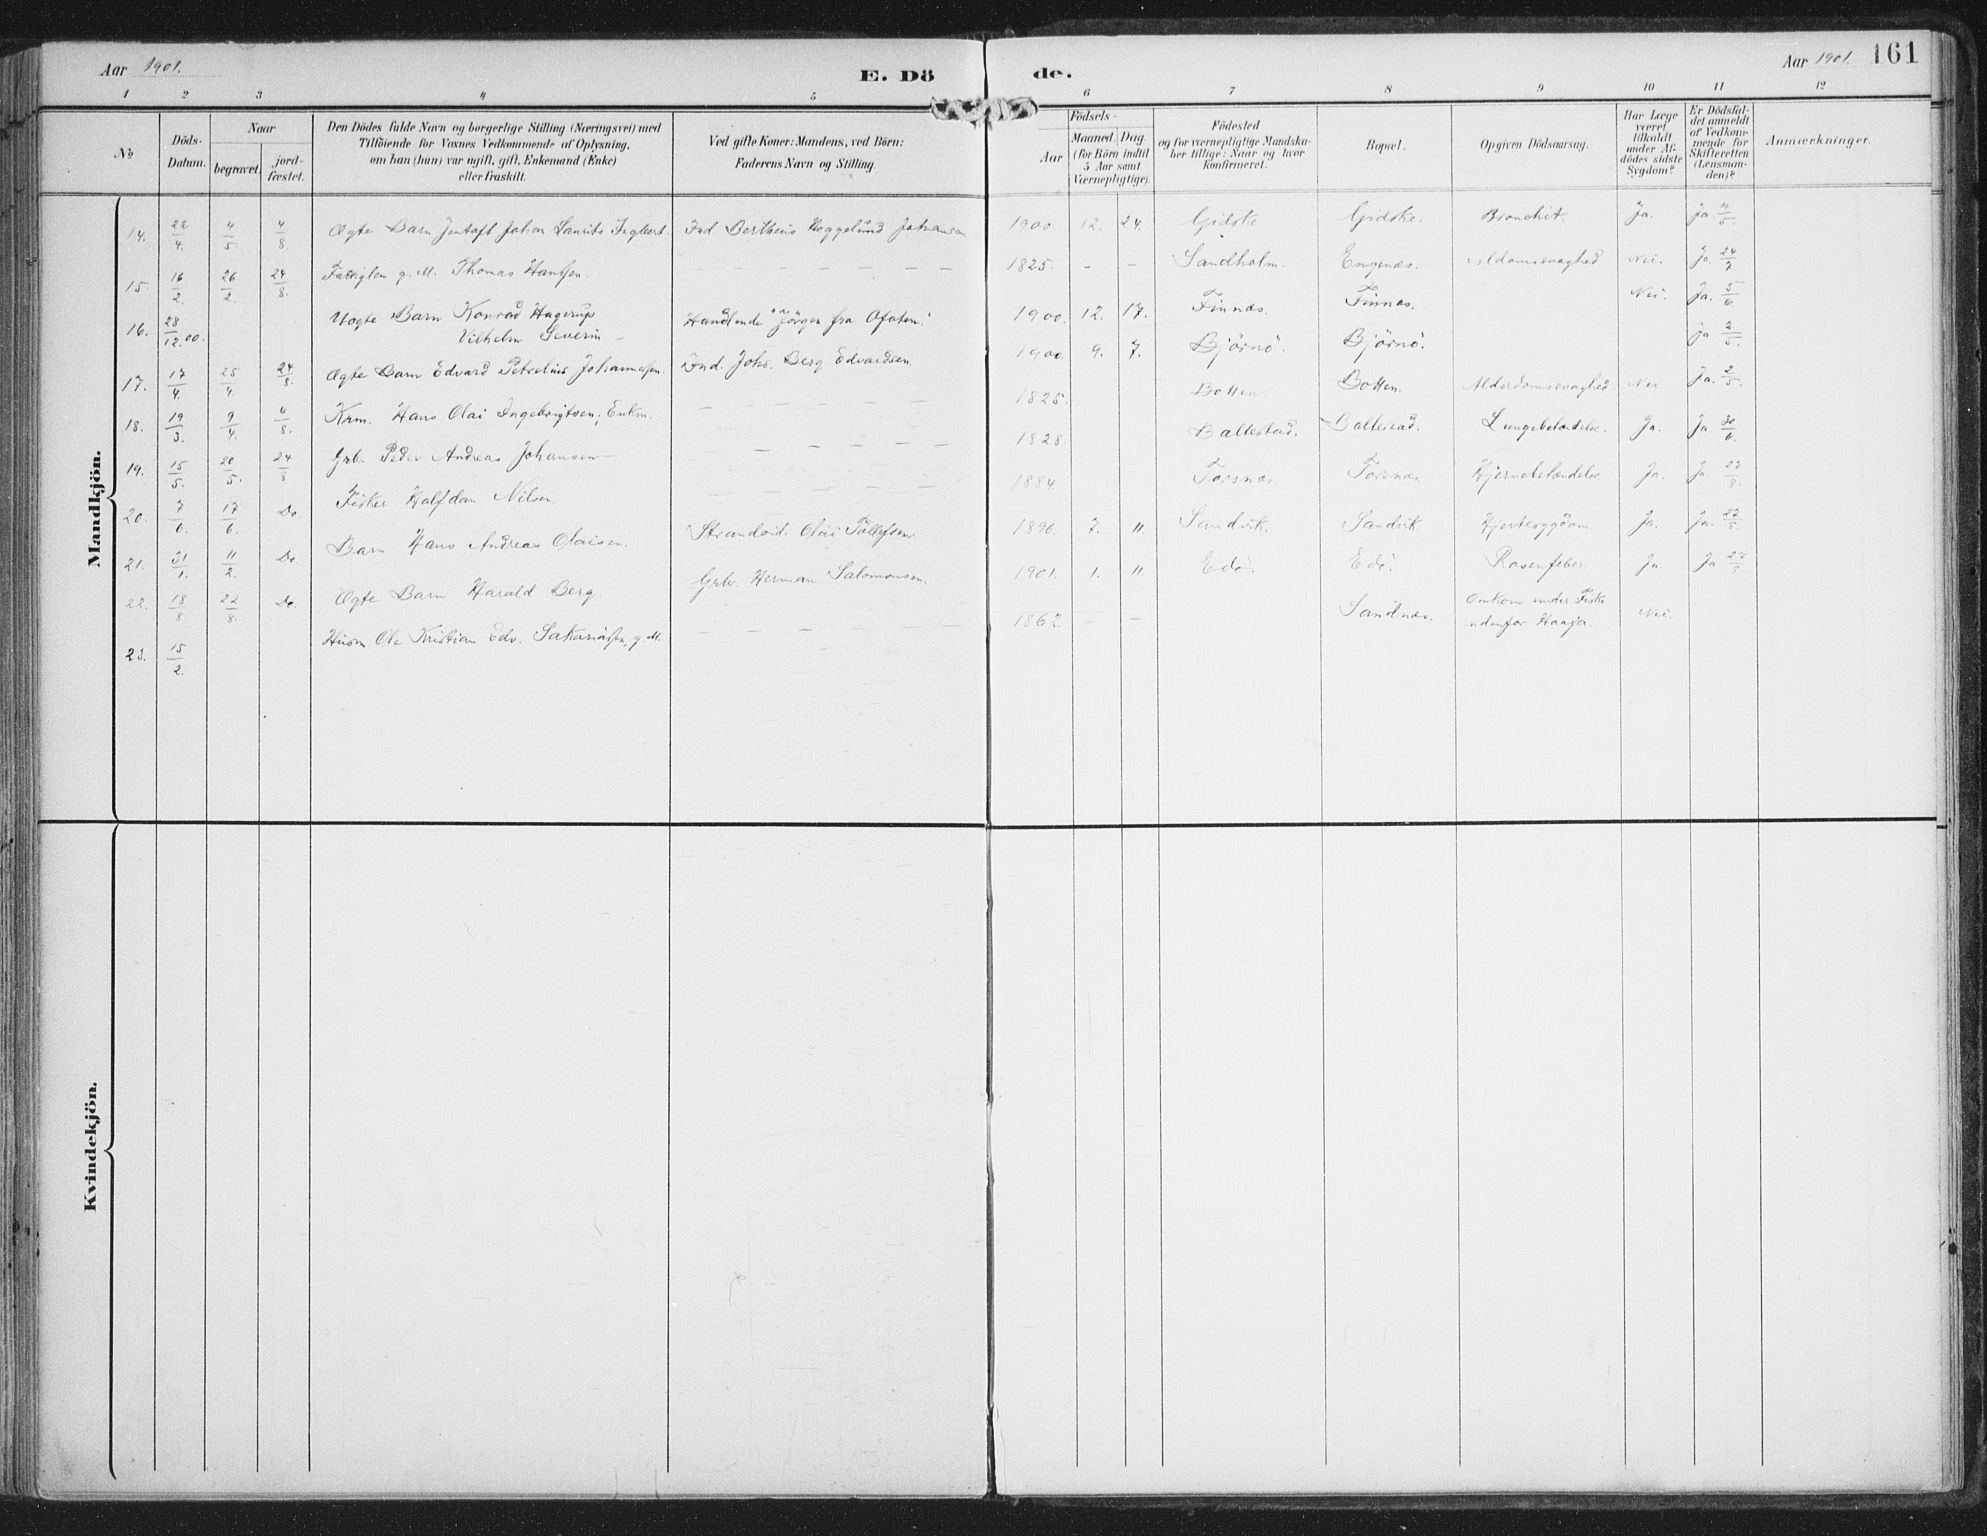 Aar 1901.
E. Dö
de.
Aar 1901.
161
1 2 3 4 5 6 7 8 9 10 11 12
No
Döds-
Datum.
Naar
begravet.
jord-
fæstet.
Den Dödes fulde Navn og borgerlige Stilling (Næringsvei) med
Tilföiende for Voxnes Vedkommende af Oplysning,
om han (hun) var ugift, gift, Enkemand (Enke)
eller fraskilt.
Ved gifte Koner: Mandens, ved Börn:
Faderens Navn og Stilling.
Födsels-
Aar
Maaned. Dag.
(for Börn indtil
5 Aar samt
Værnepligtige).
Födested
og for værnepligtige Mandska-
ber tillige: Naar og hvor
konfirmeret.
Bopæl.
Opgiven Dödsaarsag.
Har Læge
været
tilkaldt
under Af-
dödes sidste
Sygdom?
Er Dödsfal-
det anmeldt
af Vedkom-
mende for
Skifteretten
(Lensman-
den)?
Anmærkninger.
Mandkjön.
14. 22/4. 4/5. 4/8 Ægte Barn Jentoft Johan Laurits Ingbert. Ind. Bertheus Heggelund Johansen 1900 12. 24. Gidske Gidske. Bronchit. Ja. Ja
15. 16/2. 26/2. 24/8. g. M. Thomas Hansen. — — — — — — 1825. - - Sandholm. Engenæs. Alddomssvaghed Nei. Ja. 24/7
16. 28/12.00. Uægte Barn Konrad Hagerup
Vilhelm Severin — Handlende "Jörgen fra Ofoten." 1900. 12. 17. Finnæs. Finnæs. Nei. Ja. 5/6.
17. 17/4. 25/4. 24/8. Ægte Barn Edvard Petrelius Johannesen. Ind. Johs. Berg Edvardsen. 1900. 9. 7. Björnö. Björnö. Ja 2/5.
18. 19/3. 9/4. 4/8. Krm. Hans Olai Ingebrigtsen, Enkm. — — — — — 1825. Botten Botten. Alderdomssvaghed. Nei Ja. 2/5.
19. 15/5. 20/5. 24/8 Grb. Peder Andreas Johansen — — — — — 1828. Baltestad. Baltestad. Lungebetændelse. Ja. Ja. 30/6.
20. 7/6. 17/6. Do Fisker Halfdan Nilsen. — — — — — 1884 Torsnæs. Torsnæs. Hjernebetændelse Ja. Ja. 27/8.
21. 31/1. 11/2. Do Barn Hans Andreas Olaisen. Strandsid. Olai Tollefsen. 1896. 7. 11. Sandvik. Sandvik. Hjertesygdom. Ja. Ja. 27/8.
22. 18/8 22/8. Do. Ægte Barn Harald Berg Grbr. Herman Salomonsen. 1901. 1. 11. Edö. Edö. Rosenfeber. Ja. Ja 27/8
23. 15/2. Husm Ole Kristian Edv. Sakariasen, g. M. — — — — — — 1862. — — Sandnæs. Omkom under Fiske
udenfor Haaja. Nei.
Kvindekjön.